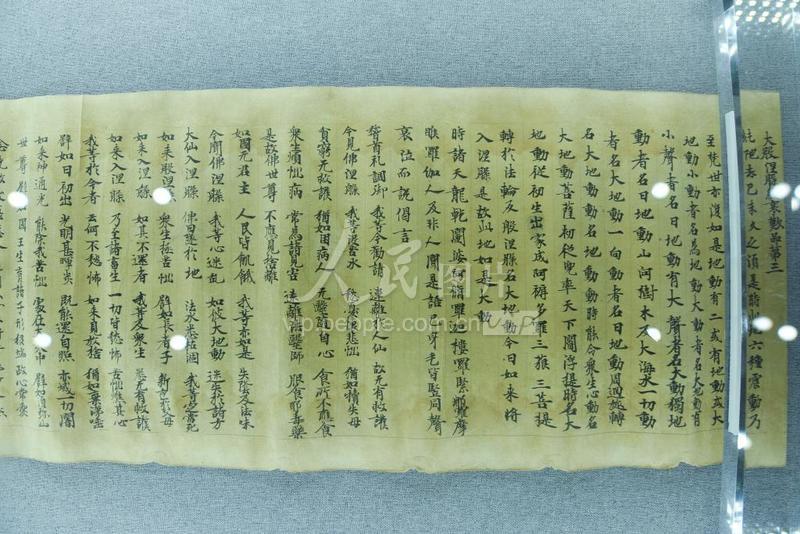 大般涅槃經哀歎品第三
純陀去已未久之頃是時此地六種震動乃
至梵世亦復如是地動有二或有地動或大
地動小動者名為地動大動者名大地動有
小聲者名曰地動有大聲者名大動獨地
動者名曰地動山河樹木及大海水一切動
者名大地動一向動者名曰地動周迴旋轉
名大地動動名地動動時能令眾生心動名
大地動菩薩初從兜率天下閻浮提時名大
地動從初生出家成阿耨多羅三藐三菩提
轉於法輪及般涅槃名大地動今日如來將
入涅槃是故此地如是大動
時諸天龍乾闥婆阿脩羅迦樓羅緊那羅摩
睺羅伽人及非人聞是語已身毛皆豎同聲
哀泣而說偈言
稽首礼調御 我等今勸請 遠離於人仙 故无有救護
今見佛涅槃 我等沒苦水 愁憂懷悲惱 猶如犢失母
貧窮无救護 猶如困病人 无醫隨自心 食所不應食
眾生煩惱病 常為諸見害 遠離法醫師 服食耶毒藥
是故佛世尊 不應見捨離
如國无君主 人民皆飢餓 我等亦如是 失陰及法味
今聞佛涅槃 我等心迷亂 如彼大地動 迷失於諸方
大仙入涅槃 佛日墜於地 法水悉枯涸 我等定當死
如來般涅槃 眾生極苦惱 譬如長者子 新喪於父母
如來入涅槃 如其不還者 我等及眾生 悉无有救護
如來入涅槃 乃至諸畜生 一切皆愁怖 苦惱燋其心
我等於今者 云何不愁怖 如來見放捨 猶如棄涕唾
譬如日初出 光明甚暉炎 既能還自照 亦滅一切闇
如來神通光 能除我苦惱 處在大眾中 譬如須弥山
世尊譬如國王生育諸子形貌端政心常愛